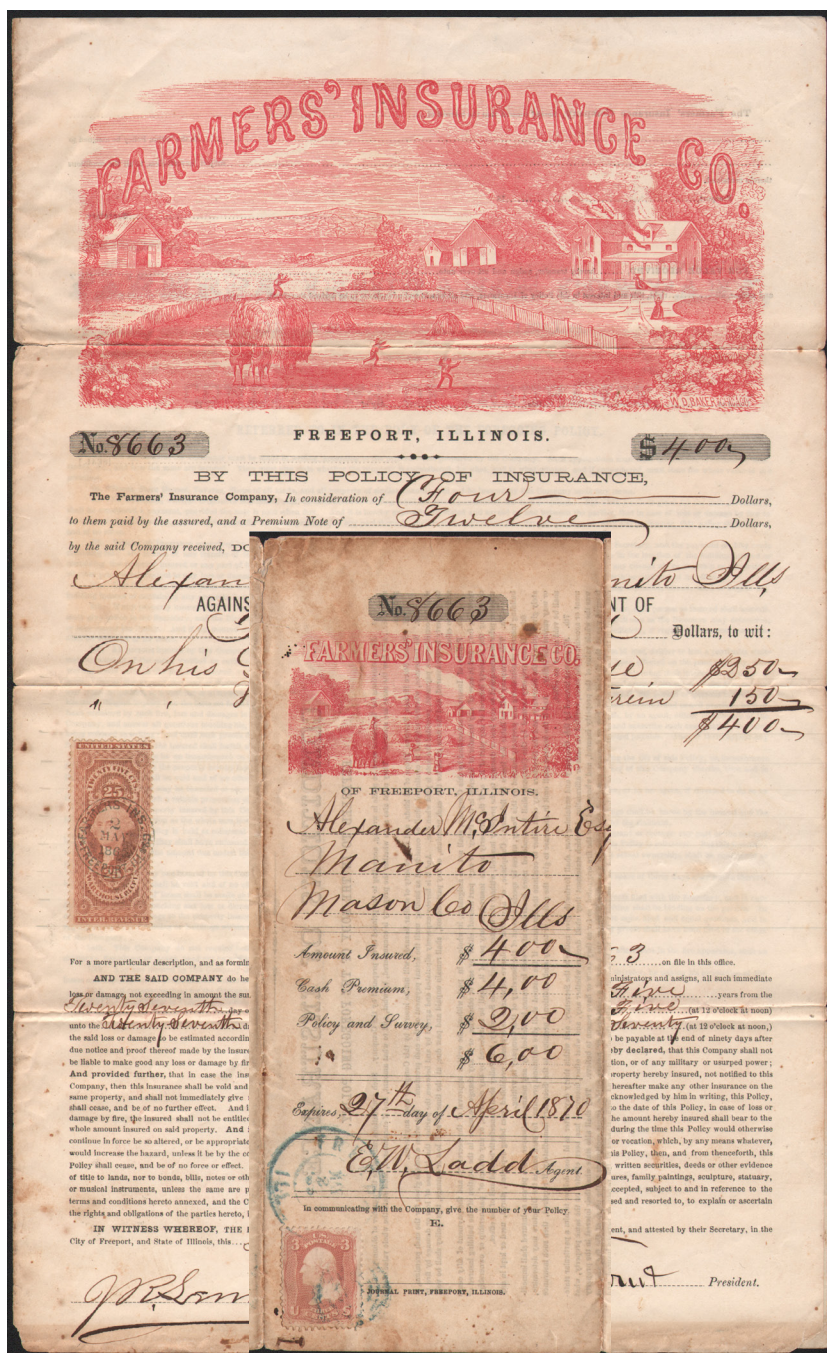 FARMERS' INSURANCE CO.
W.D. BAKER CHICAGO
No. 8663
FREEPORT, ILLINOIS.
$ 400
BY THIS POLICY OF INSURANCE,
The Farmers' Insurance Company, In consideration of Four Dollars,
to them paid by the assured, and a Premium Note of Twelve Dollars,
by the said Company received, DO
Alexan nito Ills
AGAINS NT OF
Dollars, to wit:
On his $250
rein 150
$400
UNITED STATES
TWENTY FIVE
25
2
MAY
25
INTER. REVENUE
For a more particular description, and as formin 3 on file in this office.
AND THE SAID COMPANY do he ministrators and assigns, all such immediate
loss or damage, not exceeding in amount the su Five years from the
Twenty Seventh day Five (at 12 o'clock at noon)
unto the Twenty Seventh d Seventy (at 12 o'clock at noon,)
the said loss or damage to be estimated accordin be payable at the end of ninety days after
due notice and proof thereof made by the insure by declared, that this Company shall not
be liable to make good any loss or damage by fir tion, or of any military or usurped power;
And provided further, that in case the ins roperty hereby insured, not notified to this
Company, then this insurance shall be void and hereafter make any other insurance on the
same property, and shall not immediately give cknowledged by him in writing, this Policy,
shall cease, and be of no further effect. And i to the date of this Policy, in case of loss or
damage by fire, the insured shall not be entitled he amount hereby insured shall bear to the
whole amount insured on said property. And during the time this Policy would otherwise
continue in force be so altered, or be appropriate or vocation, which, by any means whatever,
would increase the hazard, unless it be by the co is Policy, then, and from thenceforth, this
Policy shall cease, and be of no force or effect. written securities, deeds or other evidence
of title to lands, nor to bonds, bills, notes or oth ures, family paintings, sculpture, statuary,
or musical instruments, unless the same are p ccepted, subject to and in reference to the
terms and conditions hereto annexed, and the C sed and resorted to, to explain or ascertain
the rights and obligations of the parties hereto, i
IN WITNESS WHEREOF, THE ent, and attested by their Secretary, in the
City of Freeport, and State of Illinois, this
President.
No. 8663
FARMERS' INSURANCE CO.
OF FREEPORT, ILLINOIS.
Alexander McIntire Esq
Manito
Mason Co Ills
Amount Insured, $ 400
Cash Premium, $ 4,00
Policy and Survey, $ 2,00
$ 6,00
Expires, 27th day of April 1870
E.W. Ladd Agent.
In communicating with the Company, give the number of your Policy.
E.
3 U.S. POSTAGE 3
JOURNAL PRINT, FREEPORT, ILLINOIS.